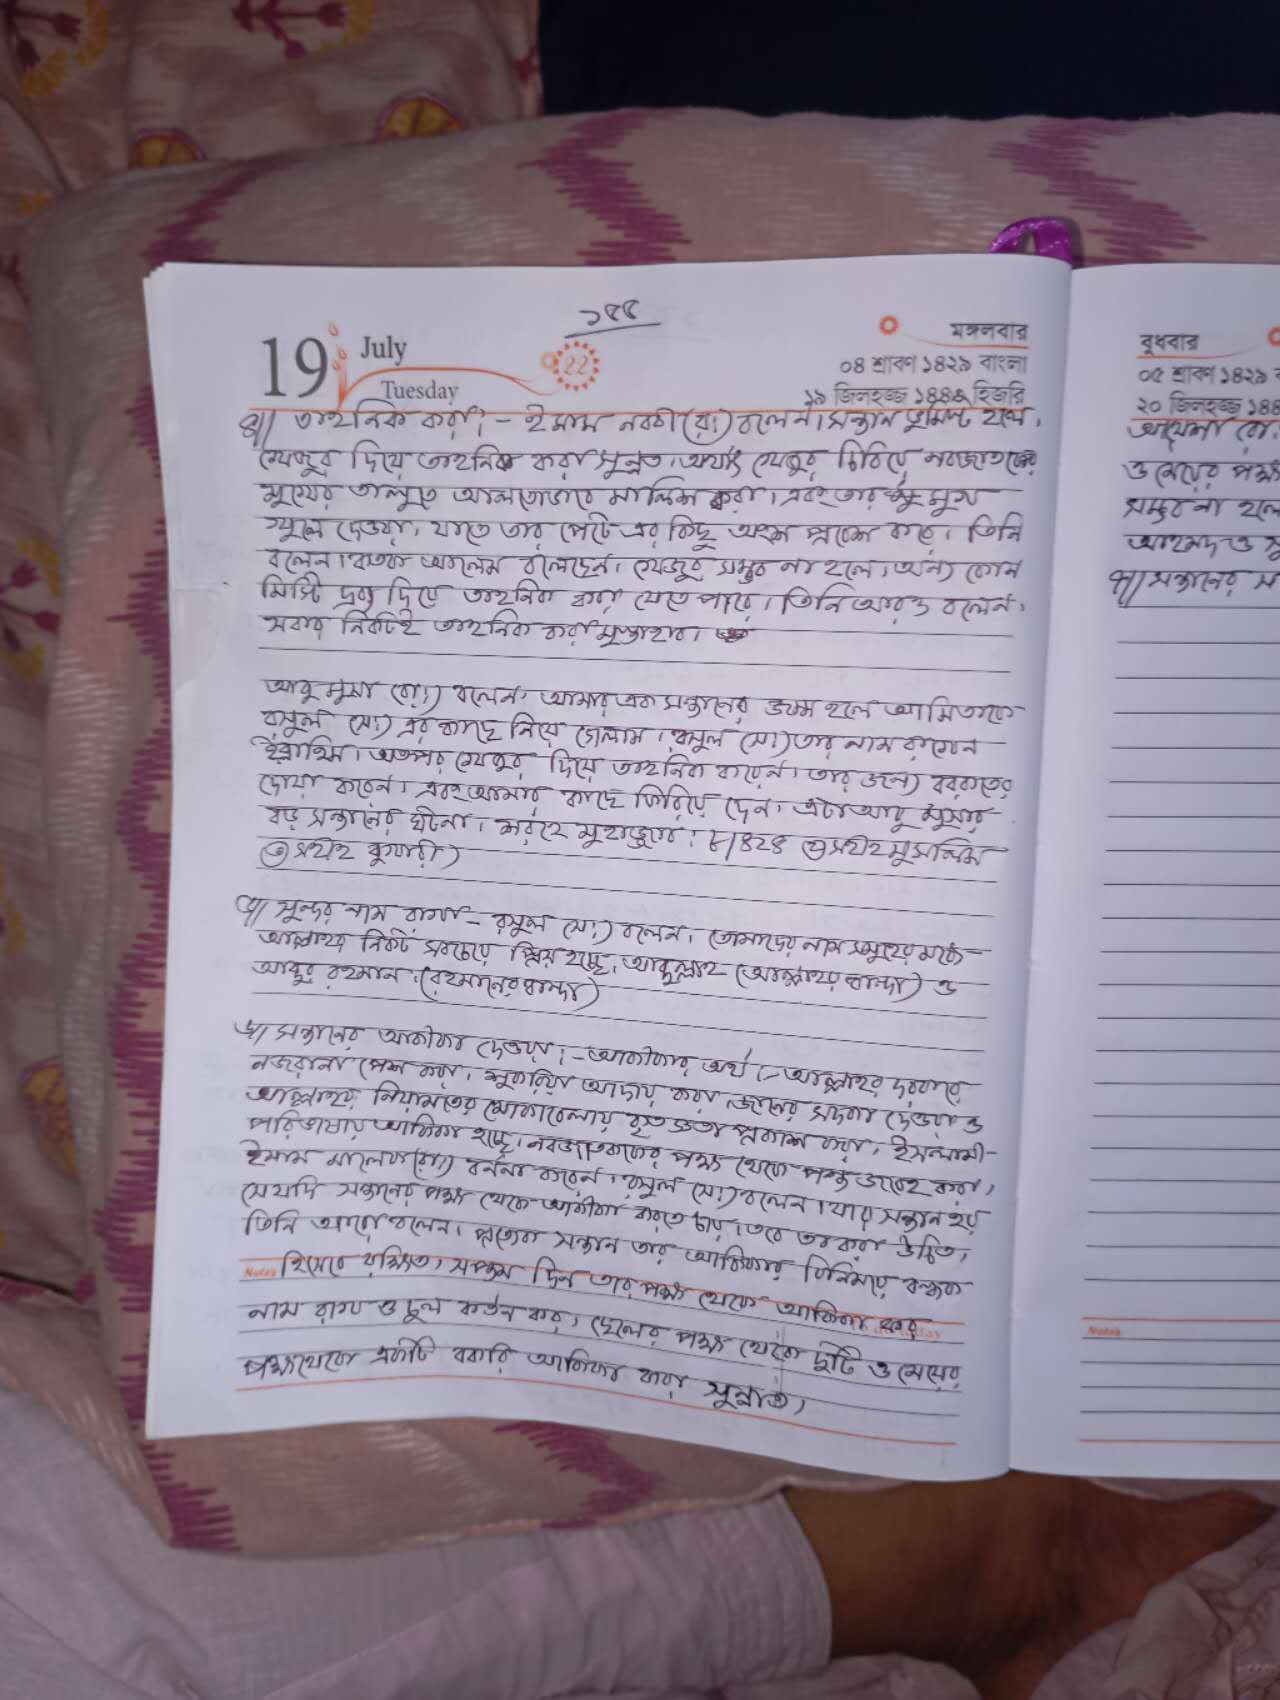 ১৫৫
19 July
Tuesday
22
মঙ্গলবার
০৪ শ্রাবণ ১৪২৯ বাংলা
১৯ জিলহজ্জ ১৪৪৩ হিজরি
৪// তাহনিক করা :- ইমাম নববী (রঃ) বলেন। সন্তান ভূমিষ্ট হলে,
খেজুর দিয়ে তাহনিক করা সুন্নত। অর্থাৎ খেজুর চিবিয়ে নবজাতকের
মুখের তালুতে আলতোভাবে মালিশ করা। এবং তার মুখ
খুলে দেওয়া, যাতে তার পেটে এর কিছু অংশ প্রবেশ করে। তিনি
বলেন। কতক আলেম বলেছেন। খেজুর সম্ভব না হলে, অন্য কোন
মিস্টি দ্রব্য দিয়ে তাহনিক করা যেতে পারে। তিনি আরও বলেন,
সবার নিকটই তাহনিক করা মুস্তাহাব।
আবু মুসা (রাঃ) বলেন, আমার এক সন্তানের জন্ম হলে আমি তাকে
রসুল (সাঃ) এর কাছে নিয়ে গেলাম। রসুল (সাঃ) তার নাম রাখেন
ইব্রাহিম। অতপর খেজুর দিয়ে তাহনিক করেন। তার জন্য বরকতের
দোয়া করেন। এবং আমার কাছে ফিরিয়ে দেন। এটা আবু মুসার
বড় সন্তানের ঘটনা। শরহে মুহাজ্জাব : ৮/৪২৪ সহীহ মুসলিম
সহীহ বুখারী)
৫// সুন্দর নাম রাখা - রসুল (সাঃ) বলেন, তোমাদের নাম সমূহের মধ্যে
আল্লাহর নিকট সবচেয়ে প্রিয় হচ্ছে, আব্দুল্লাহ (আল্লাহর বান্দা) ও
আব্দুর রহমান। (রহমানের বান্দা)
৬// সন্তানের আকীকা দেওয়া :- আকীকার অর্থ :- আল্লাহর দরবারে
নজরানা পেশ করা, শুকরিয়া আদায় করা। জানের সদকা দেওয়া ও
আল্লাহর নিয়ামতের মোকাবেলায় কৃতজ্ঞতা প্রকাশ করা, ইসলামী
পরিভাষায় আকিকা হচ্ছে, নবজাতকের পক্ষ থেকে পশু জবেহ করা,
ইমাম মালেক (রাঃ) বর্ননা করেন। রসুল (সাঃ) বলেন। যার সন্তান হয়
সে যদি সন্তানের পক্ষ থেকে আকীকা করতে চায়, তবে তা করা উচিত,
তিনি আরো বলেন। প্রত্যেক সন্তান তার আকিকার বিনিময়ে বন্ধক
Notes হিসেবে রক্ষিত, সপ্তম দিন তার পক্ষ থেকে আকিকা কর
নাম রাখ ও চুল কর্তন কর, ছেলের পক্ষ থেকে দুটি ও মেয়ের
পক্ষ থেকে একটি বকরি আকিকা করা সুন্নাত,
বুধবার
০৫ শ্রাবণ ১৪২৯
২০ জিলহজ্জ ১৪৪
আয়েশা (রা.
ও মেয়ের পক্ষ
সম্ভব না হলে
আহমদ ও
৭// সন্তানের
Notes